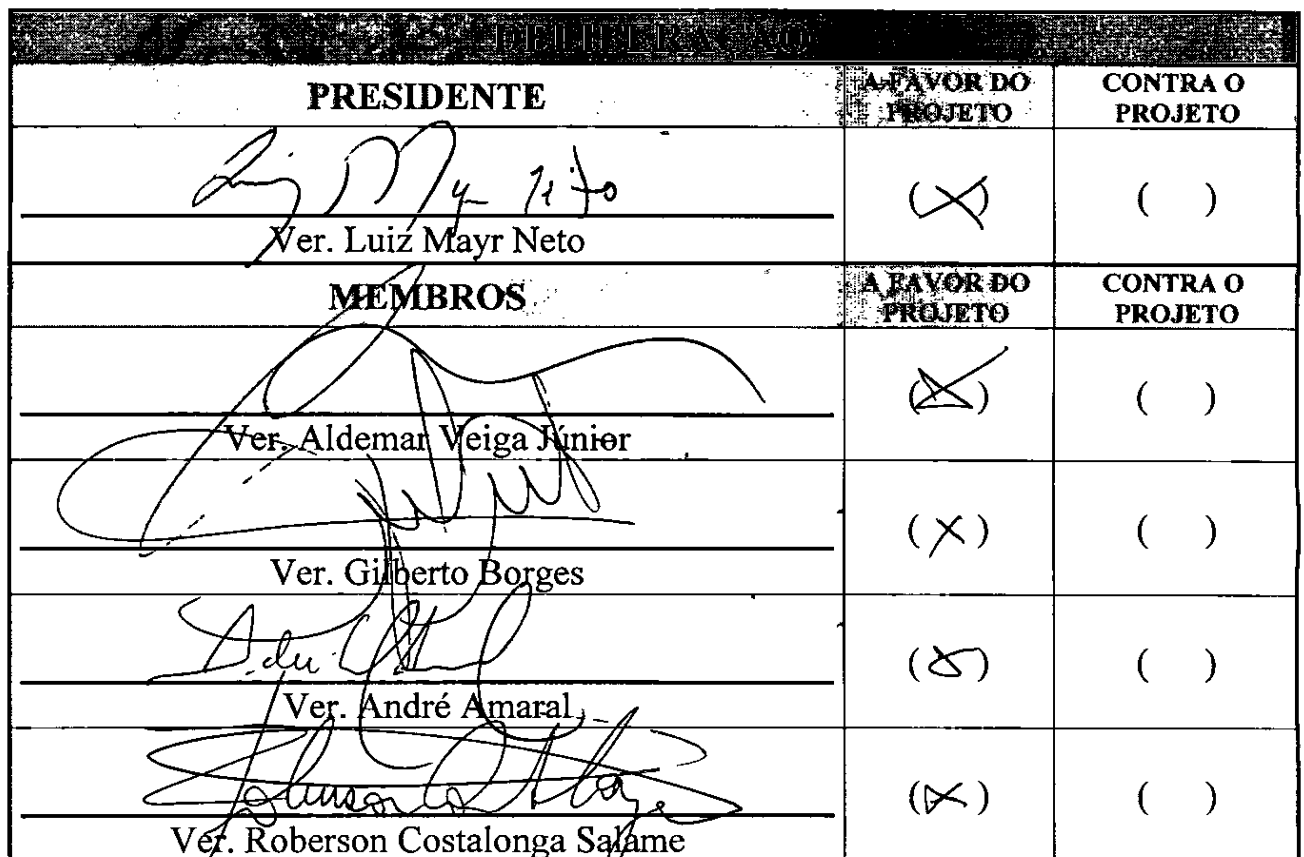 DELIBERAÇÃO
PRESIDENTE
A FAVOR DO
PROJETO
CONTRA O
PROJETO
Luiz Mayr Neto
(X)
( )
Ver. Luiz Mayr Neto
MEMBROS
A FAVOR DO
PROJETO
CONTRA O
PROJETO
(X)
( )
Ver. Aldemar Veiga Júnior
(X)
( )
Ver. Gilberto Borges
(X)
( )
Ver. André Amaral
(X)
( )
Ver. Roberson Costalonga Salame